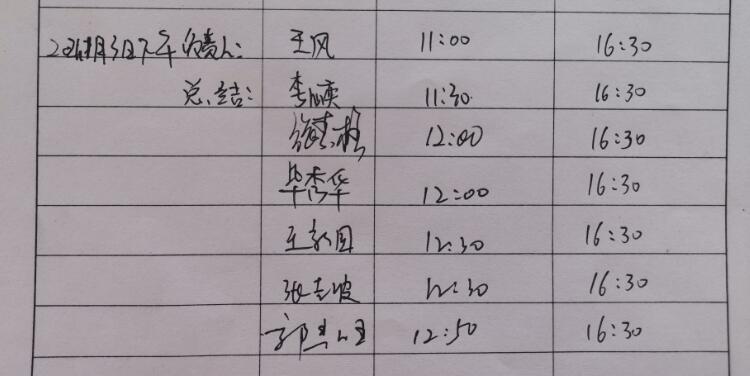 下午 负责人: 王风 11:00 16:30
总结: 李 11:30 16:30
12:00 16:30
毕秀华 12:00 16:30
王 国 12:30 16:30
张志波 12:30 16:30
郭 12:50 16:30